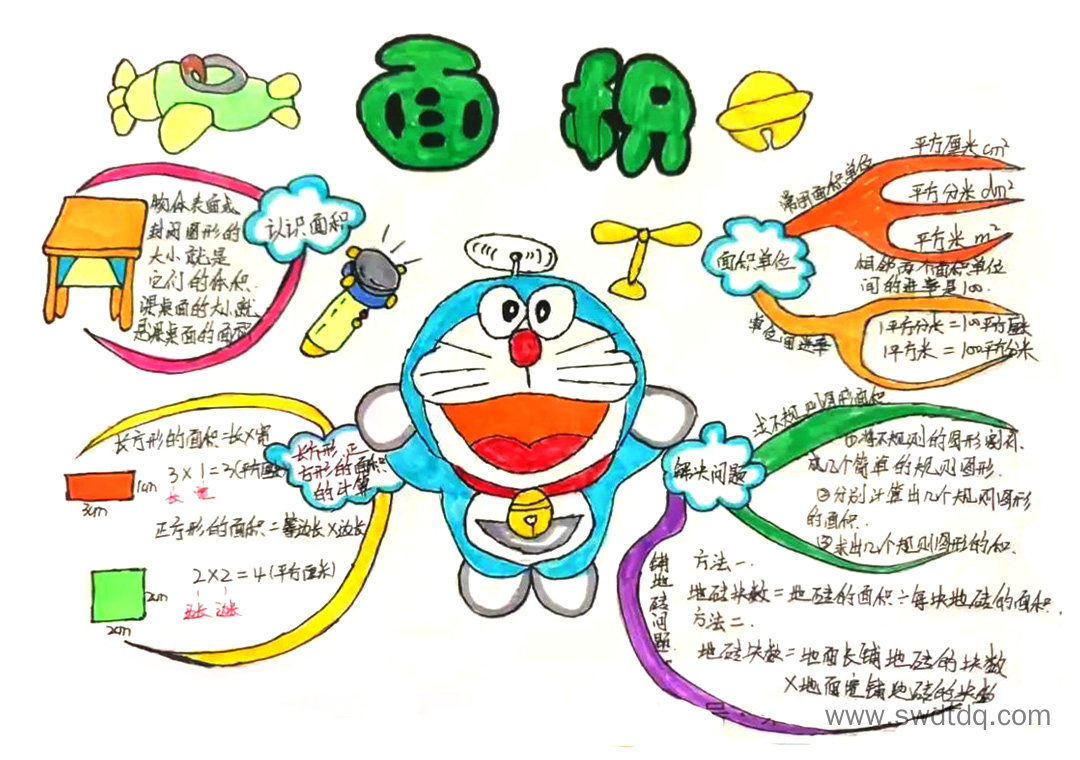 面积
认识面积
物体表面或
封闭图形的
大小就是
它们的体积.
课桌面的大小就
是课桌面的面积
面积单位
常用面积单位
平方厘米 cm²
平方分米 dm²
平方米 m²
相邻两个面积单位
间的进率是100.
单位间进率
1平方分长=100平方厘米
1平方米=100平方分米
长方形、正
方形的面积
的计算
长方形的面积=长×宽
3×1=3(平方厘米)
长 宽
1cm
3cm
正方形的面积=边长×边长
2×2=4(平方厘米)
边长 边长
2cm
2cm
解决问题
求不规则图形面积
①将不规则的图形割补
成几个简单的规则图形.
②分别计算出几个规则图形
的面积.
③求出几个规则图形的和.
铺地砖问题
方法一.
地砖块数=地砖的面积÷每块地砖的面积.
方法二.
地砖块数=地面长铺地砖的块数
×地面宽铺地砖的块数
www.swdtdq.com